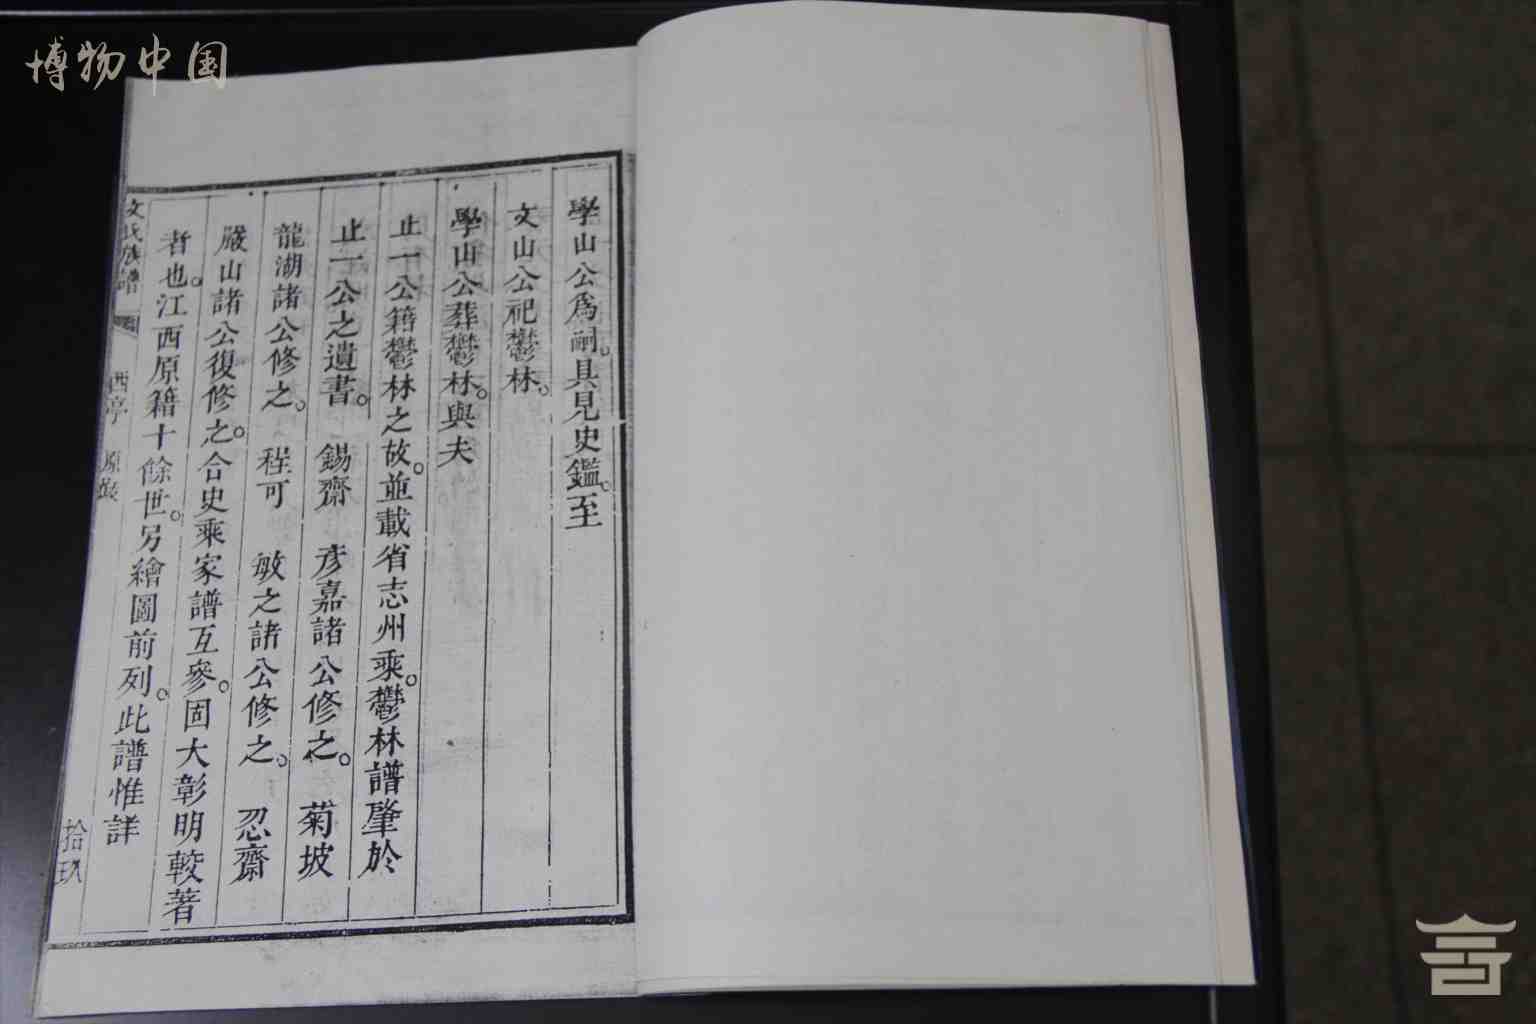 博物中国
學山公爲嗣。具見史鑑。至
文山公祀鬱林。
學山公葬鬱林。與夫
止一公籍鬱林之故。並載省志州乘。鬱林譜肇於
止一公之遺書。錫齋 彥嘉諸公修之。菊坡
龍湖諸公修之。程可 敏之諸公修之。忍齋
嚴山諸公復修之。合史乘家譜互參。固大彰明較著
者也。江西原籍十餘世。另繪圖前列。此譜惟詳
文氏族譜 西亭 原 拾玖